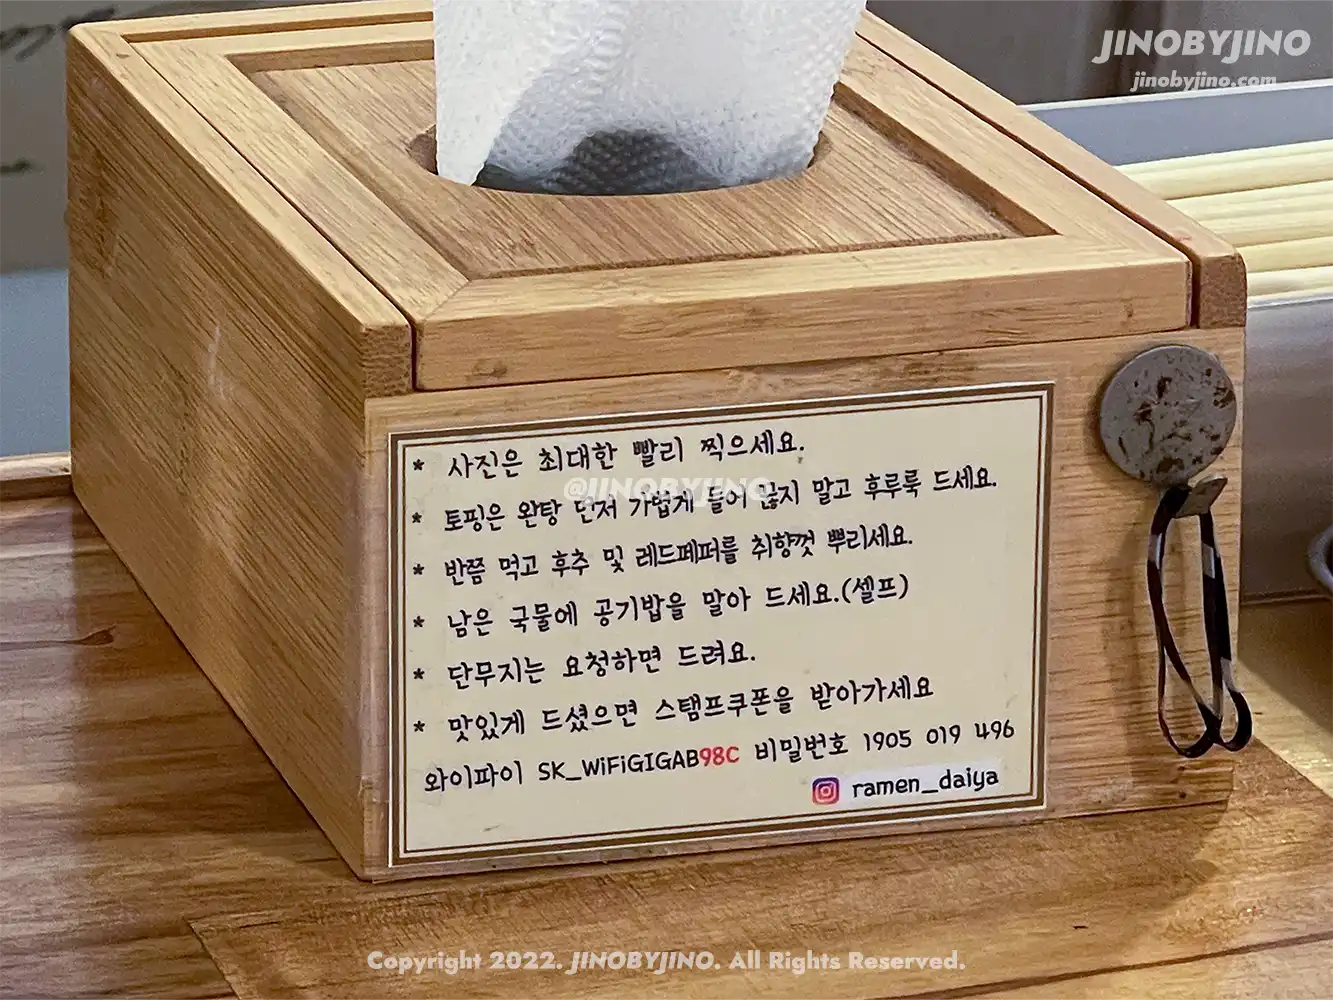 JINOBYJINO
jinobyjino.com
* 사진은 최대한 빨리 찍으세요.
@JINOBYJINO
* 토핑은 완탕 먼저 가볍게 들어 끊지 말고 후루룩 드세요.
* 반쯤 먹고 후추 및 레드페퍼를 취향껏 뿌리세요.
* 남은 국물에 공기밥을 말아 드세요.(셀프)
* 단무지는 요청하면 드려요.
* 맛있게 드셨으면 스탬프쿠폰을 받아가세요
와이파이 SK_WiFiGIGAB98C 비밀번호 1905 019 496
ramen_daiya
Copyright 2022. JINOBYJINO. All Rights Reserved.